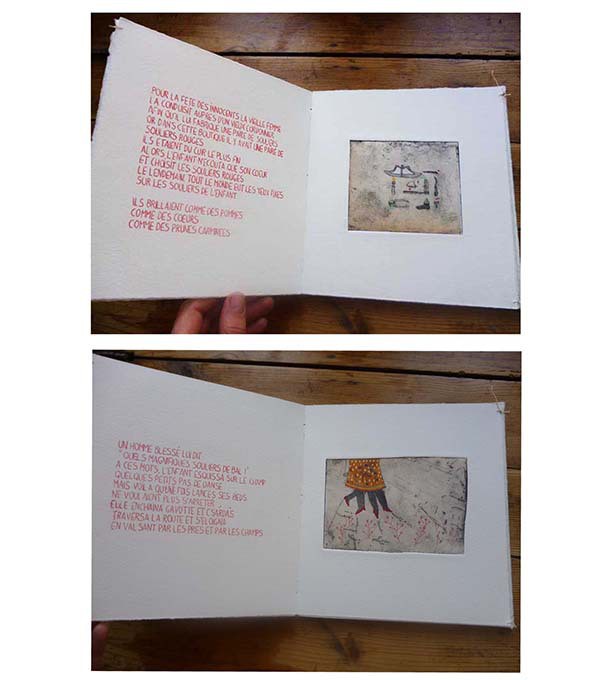 POUR LA FETE DES INNOCENTS LA VIEILLE FEMME
LA CONDUISIT AUPRES D'UN VIEUX CORDONNIER
AFIN QU'IL LUI FABRIQUE UNE PAIRE DE SOULIERS
OR DANS CETTE BOUTIQUE IL Y AVAIT UNE PAIRE DE
SOULIERS ROUGES
ILS ETAIENT DU CUIR LE PLUS FIN
ALORS L'ENFANT N'ECOUTA QUE SON COEUR
ET CHOISIT LES SOULIERS ROUGES
LE LENDEMAIN, TOUT LE MONDE EUT LES YEUX FIXES
SUR LES SOULIERS DE L'ENFANT
ILS BRILLAIENT COMME DES POMMES
COMME DES COEURS
COMME DES PRUNES CARMINEES
UN HOMME BLESSÉ LUI DIT
"QUELS MAGNIFIQUES SOULIERS DE BAL !"
A CES MOTS, L'ENFANT ESQUISSA SUR LE CHAMP
QUELQUES PETITS PAS DE DANSE
MAIS VOILA QU'UNE FOIS LANCES, SES PIEDS
NE VOULAIENT PLUS S'ARRETER
ELLE ENCHAINA GAVOTTE ET CSARDAS
TRAVERSA LA ROUTE ET S'ELOIGNA
EN VALSANT PAR LES PRES ET PAR LES CHAMPS